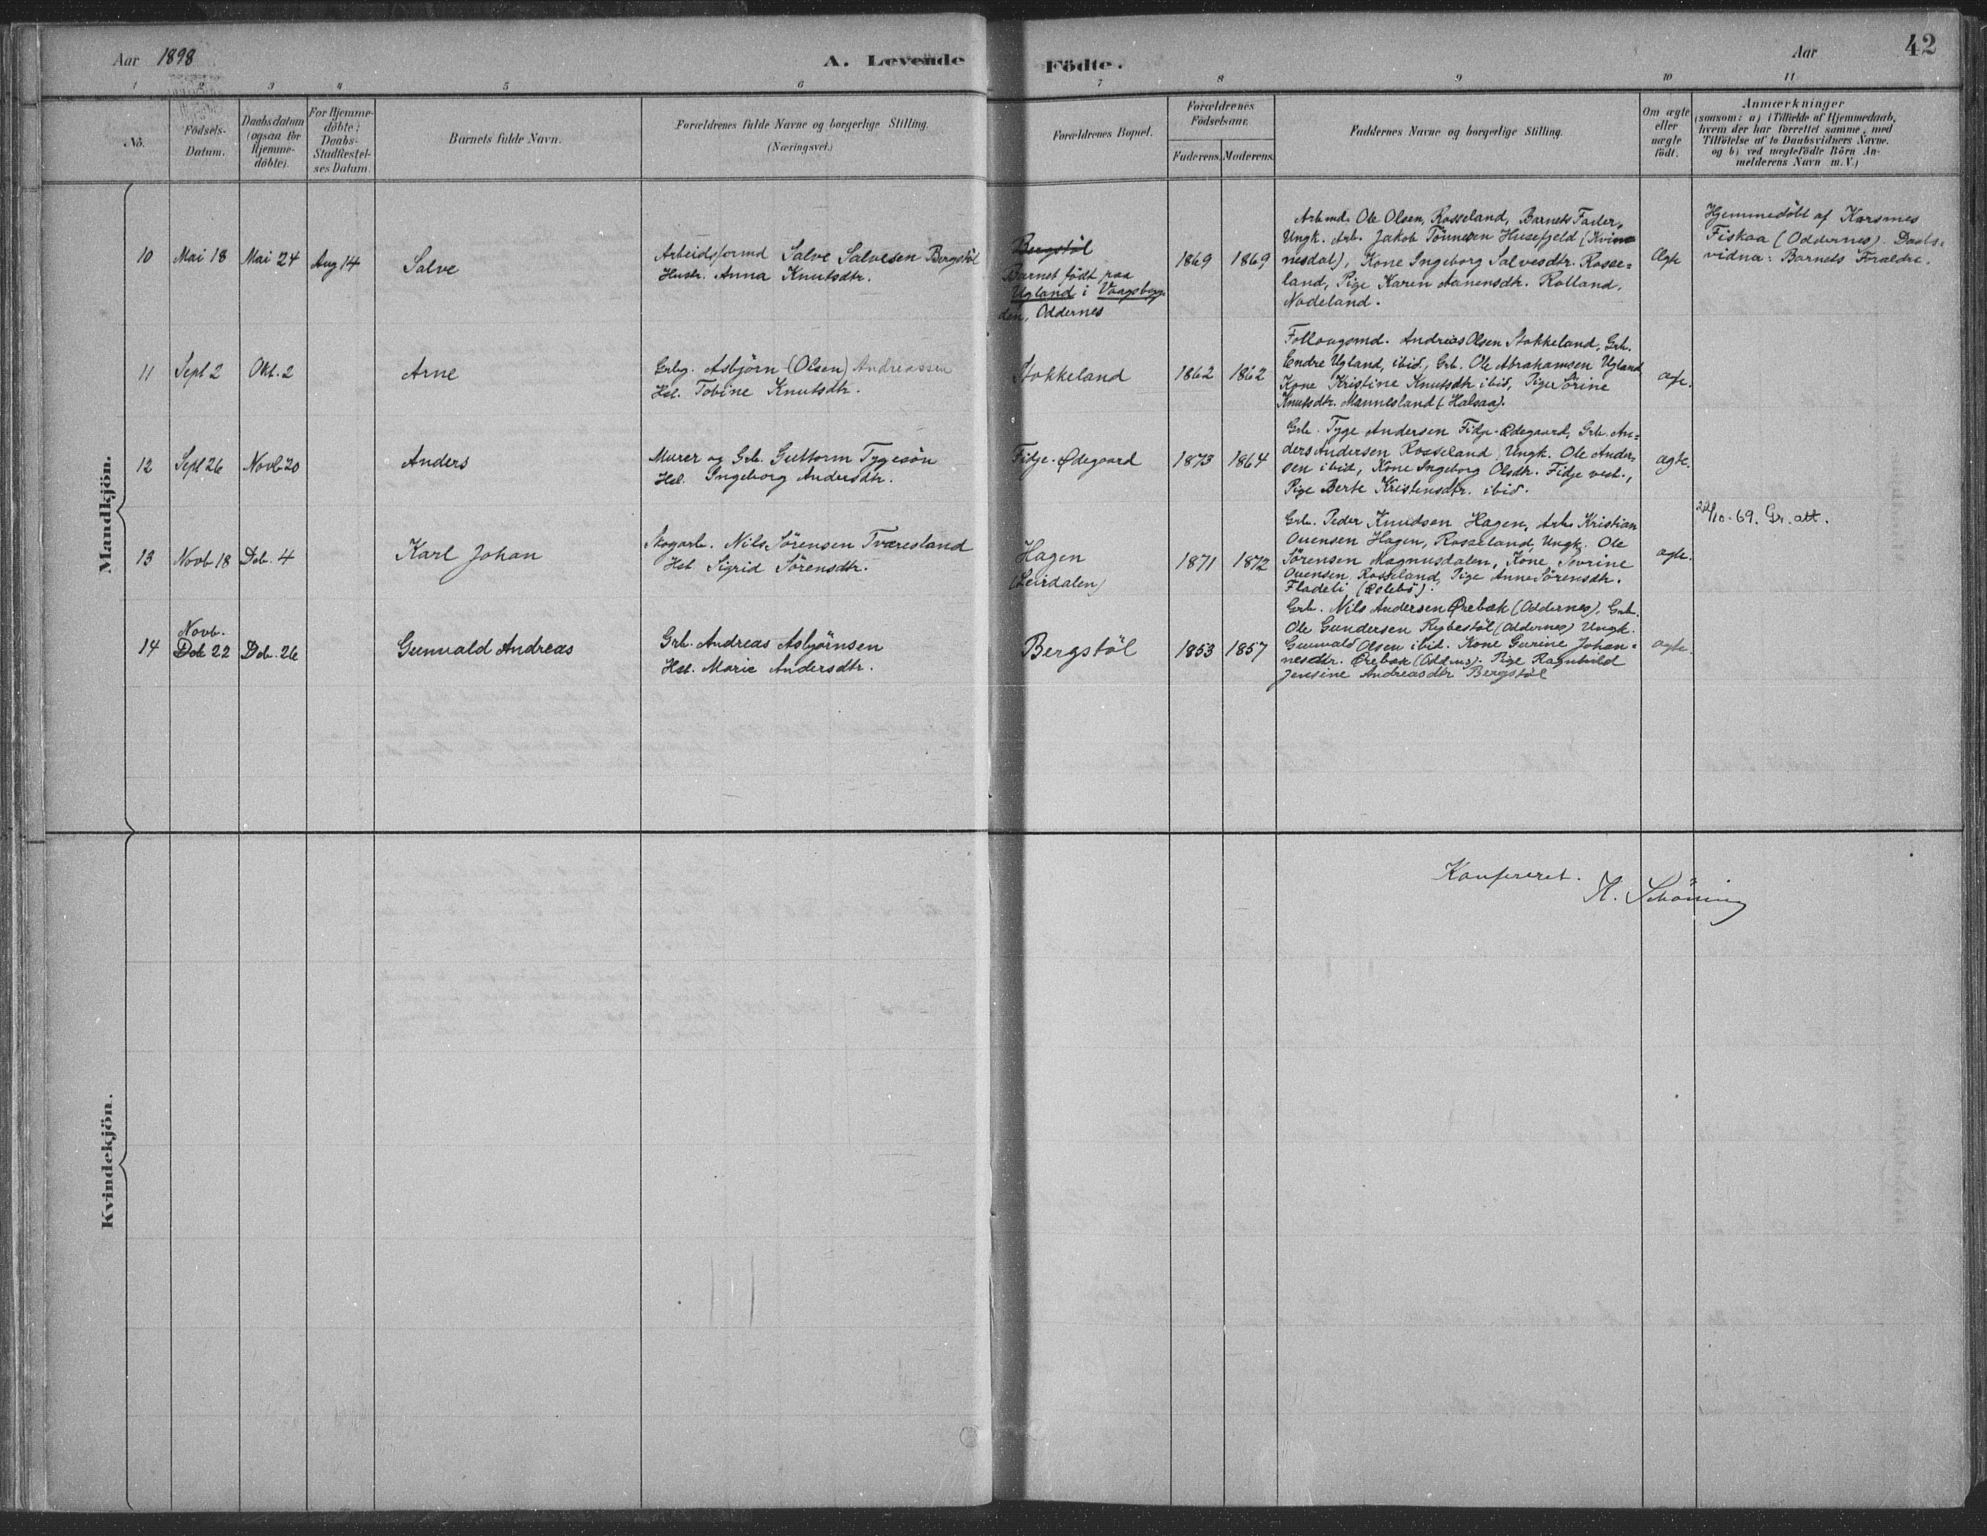 Aar 1898
A. Levende Födte.
Aar
42
1 2 3 4 5 6 7 8 9 10 11
No.
Födsels-
Datum.
Daabsdatum
(ogsaa for
Hjemme-
döbte).
For Hjemme-
döbte:
Daabs-
Stadfæstel-
ses Datum.
Barnets fulde Navn.
Forældrenes fulde Navne og borgerlige Stilling.
(Næringsvei.)
Forældrenes Bopæl.
Forældrenes
Födselsaar.
Faderens. Moderens.
Faddernes Navne og borgerlige Stilling.
Om ægte
eller
uægte
födt.
Anmærkninger
(saasom: a) i Tilfælde af Hjemmedaab,
hvem der har forrettet samme, med
Tilföielse af to Daabsvidners Navne.
og b) ved uægtefödte Börn An-
melderens Navn m. V.)
Mandkjön.
10 Mai 18 Mai 24 Aug 14 Salve
Arbeidsformd Salve Salvesen Bergstöl
Hustr. Anna Knutsdtr.
Bergstöl
Barnet födt paa
Ugland i Vaagsbyg-
den, Oddernes
1869 1869
Arbmd. Ole Olsen, Rosseland, Barnets Fader,
Ungk. Arb. Jakob Tönnesen Husefjeld (Kvin
nesdal), Kone Ingeborg Salvesdtr. Rosse-
land, Pige Karen Aanensdtr. Rolland,
Nodeland.
Ægte
Hjemmedöbt af Karsmes
Fiskaa (Oddernes). Daabs-
vidna: Barnets Foraldre.
11 Sept 2 Okt. 2 Arne
Grbg. Asbjörn (Olsen) Andreassen
Hst. Tobine Knutsdtr.
Stokkeland
1862 1862
Follaugsmd. Andreas Olsen Stokkeland, Grb.
Endre Ugland, ibid., Grb. Ole Abrahamsen Ugland
Kone Kristine Knutsdtr ibid, Pige Sörine
Knutsdtr. Mannesland (Halsaa).
ægte.
12 Sept 26 Novb 20 Anders
Murer og Grb. Guttorm Tygesön
Hst. Ingeborg Andersdtr.
Fidje-Ødegaard
1873 1864
Grb. Tyge Andersen Fidje-Ødegaard, Grb. An-
ders Andersen Rosseland, Ungk. Ole Ander-
sen ibid, Kone Ingeborg Olsdtr. Fidje vest.,
Pige Berte Kristensdtr. ibid.
ægte.
13 Novb 18 Deb. 4 Karl Johan
Skogarb. Nils Sörensen Tværesland
Hst. Sigrid Sörensdtr.
Hagen
(Leirdalen)
1871 1872
Grb. Peder Knudsen Hagen, Arb. Kristian
Ouensen Hagen, Rosseland, Ungk. Ole
Sörensen Magnusdalen, Kone Severine
Ouensen Rosseland, Pige Anne Sörensdtr.
Fladeli (Øslebö).
ægte.
22/10-69. Gr. att.
14 Novb.
Deb 22 Deb. 26 Gunvald Andreas
Grb. Andreas Asbjørnsen
Hst. Marie Andersdtr.
Bergstöl
1853 1857
Grb. Nils Andersen Ørebæk (Oddernes), Grb.
Ole Gundersen Rybestöl (Oddernes) Ungk.
Gunvald Olsen ibid. Kone Gurine Johan-
nesdtr. Ørebæk (Oddrns). Pige Ragnhild
Jensine Andreasdtr Bergstöl
ægte.
Kvindekjön.
Konfereret.
H. Schöning